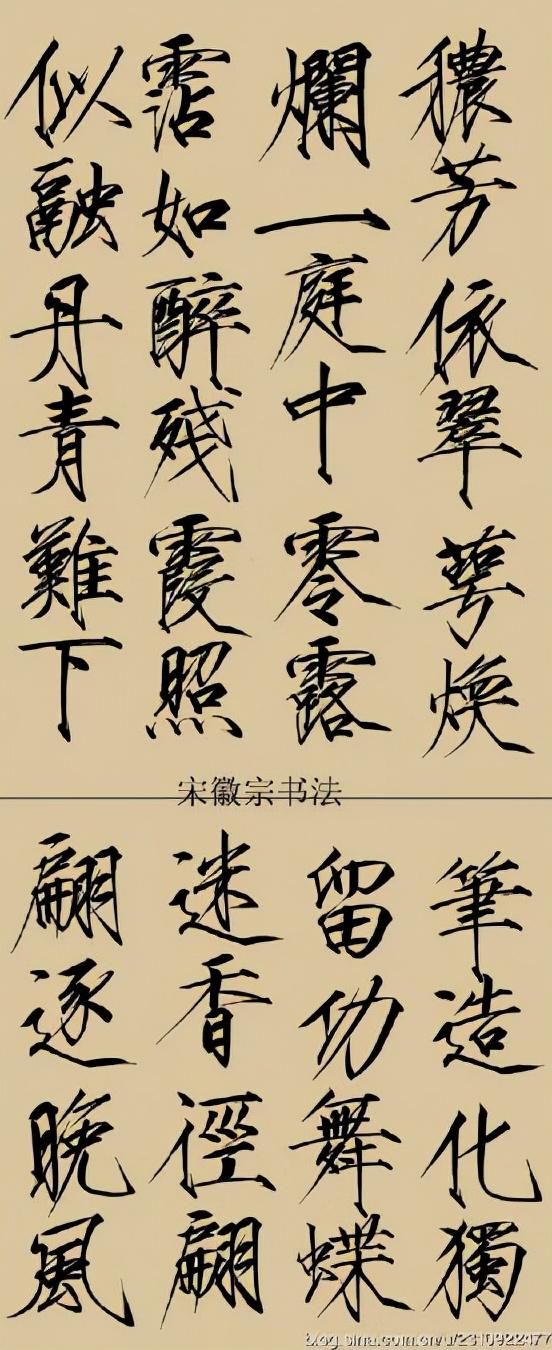 穠芳依翠萼煥
爛一庭中零露
霑如醉殘霞照
似融丹青難下
宋徽宗书法
筆造化獨
留功舞蝶
迷香徑翩
翩逐晚風
blog.sina.com.cn/u/2310922477